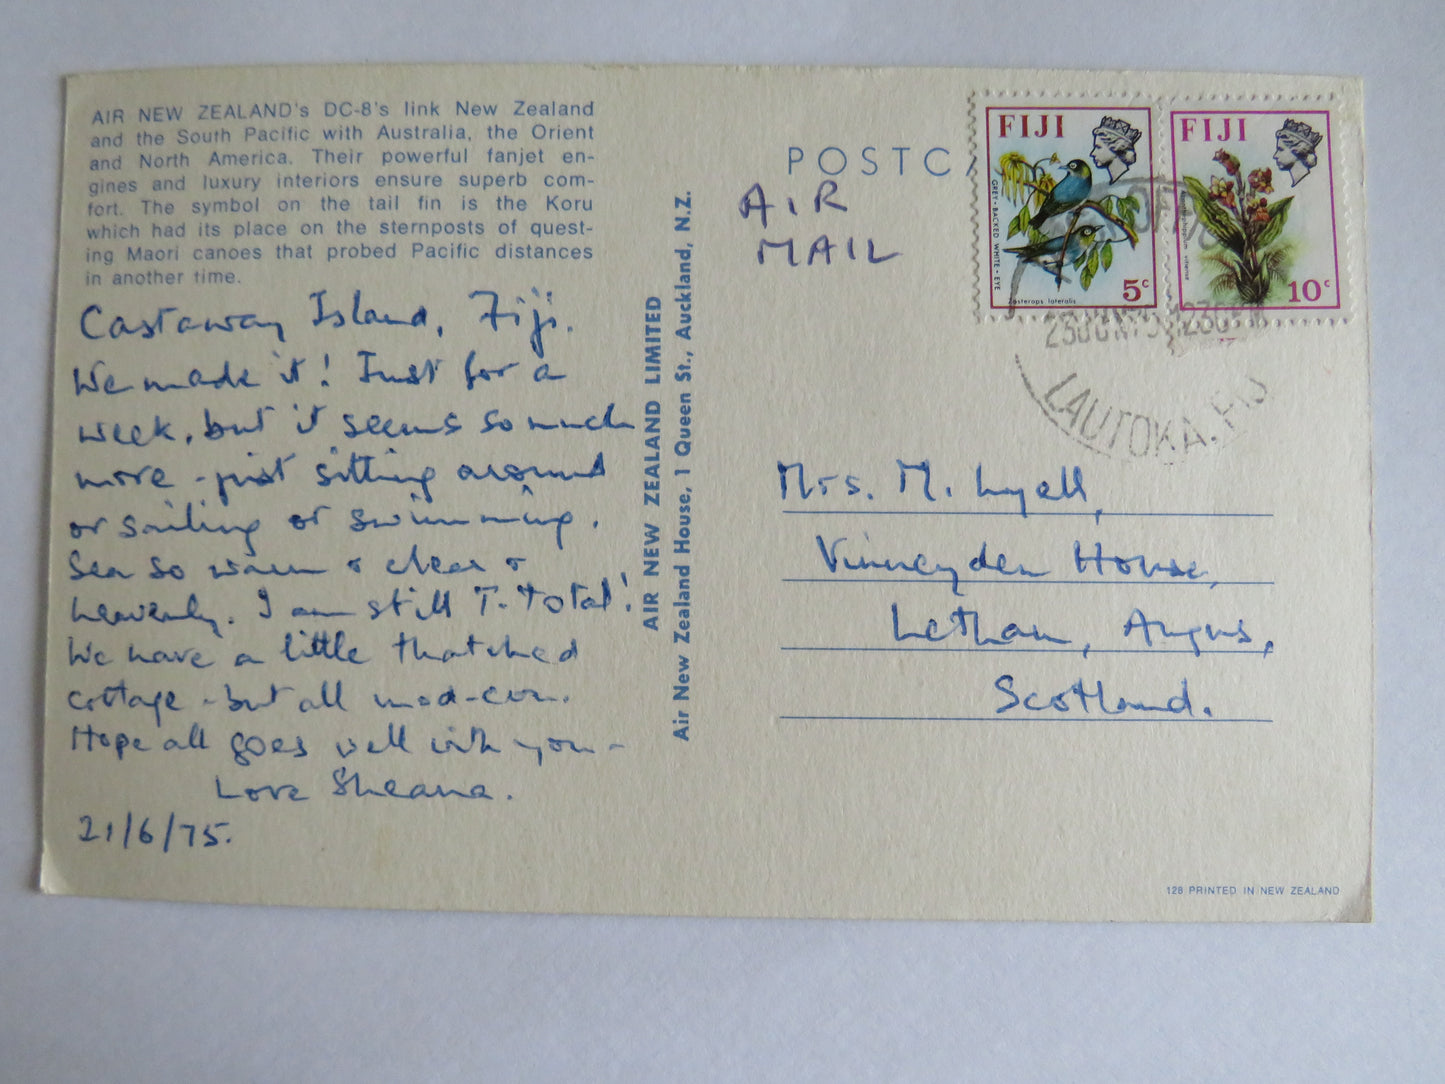 AIR NEW ZEALAND's DC-8's link New Zealand
and the South Pacific with Australia, the Orient
and North America. Their powerful fanjet en-
gines and luxury interiors ensure superb com-
fort. The symbol on the tail fin is the Koru
which had its place on the sternposts of quest-
ing Maori canoes that probed Pacific distances
in another time.
Castaway Island, Fiji.
We made it! Just for a
week, but it seems so much
more - just sitting around
or sailing or swimming.
Sea so warm & clear &
heavenly. I am still T-total!
We have a little thatched
cottage - but all mod-con.
Hope all goes well with you -
Love Sheana.
21/6/75.
AIR NEW ZEALAND LIMITED
Air New Zealand House, 1 Queen St., Auckland, N.Z.
POSTCA
AIR
MAIL
FIJI
GREY-BACKED WHITE-EYE
Zosterops lateralis
5c
FIJI
10c
LAUTOKA, FIJ
Mrs. M. Lyell,
Vinneyden House,
Letham, Angus,
Scotland.
128 PRINTED IN NEW ZEALAND